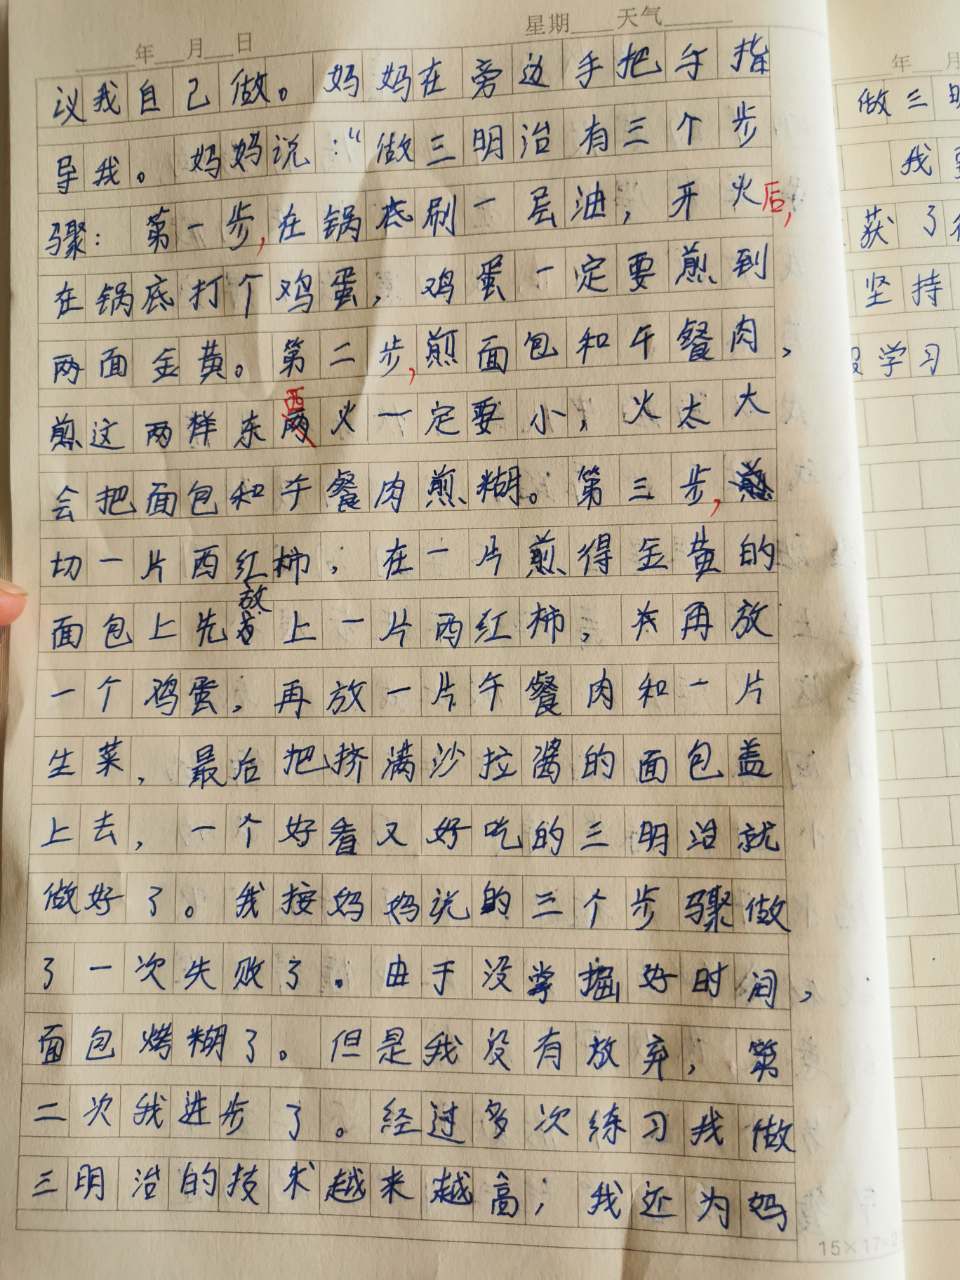 年 月 日 星期 天气
议我自己做。妈妈在旁边手把手指
导我。妈妈说：“做三明治有三个步
骤：第一步，在锅底刷一层油，开火后，
在锅底打个鸡蛋，鸡蛋一定要煎到
两面金黄。第二步，煎面包和午餐肉，
煎这两样东西火一定要小，火太大
会把面包和午餐肉煎糊。第三步，
切一片西红柿，在一片煎得金黄的
面包上先放上一片西红柿，再放
一个鸡蛋，再放一片午餐肉和一片
生菜，最后把挤满沙拉酱的面包盖
上去，一个好看又好吃的三明治就
做好了。我按妈妈说的三个步骤做
了一次失败了。由于没掌握好时间，
面包烤糊了。但是我没有放弃，第
二次我进步了。经过多次练习我做
三明治的技术越来越高；我还为妈
15×17=2
年 月
做三明
我
获了
坚持
学习